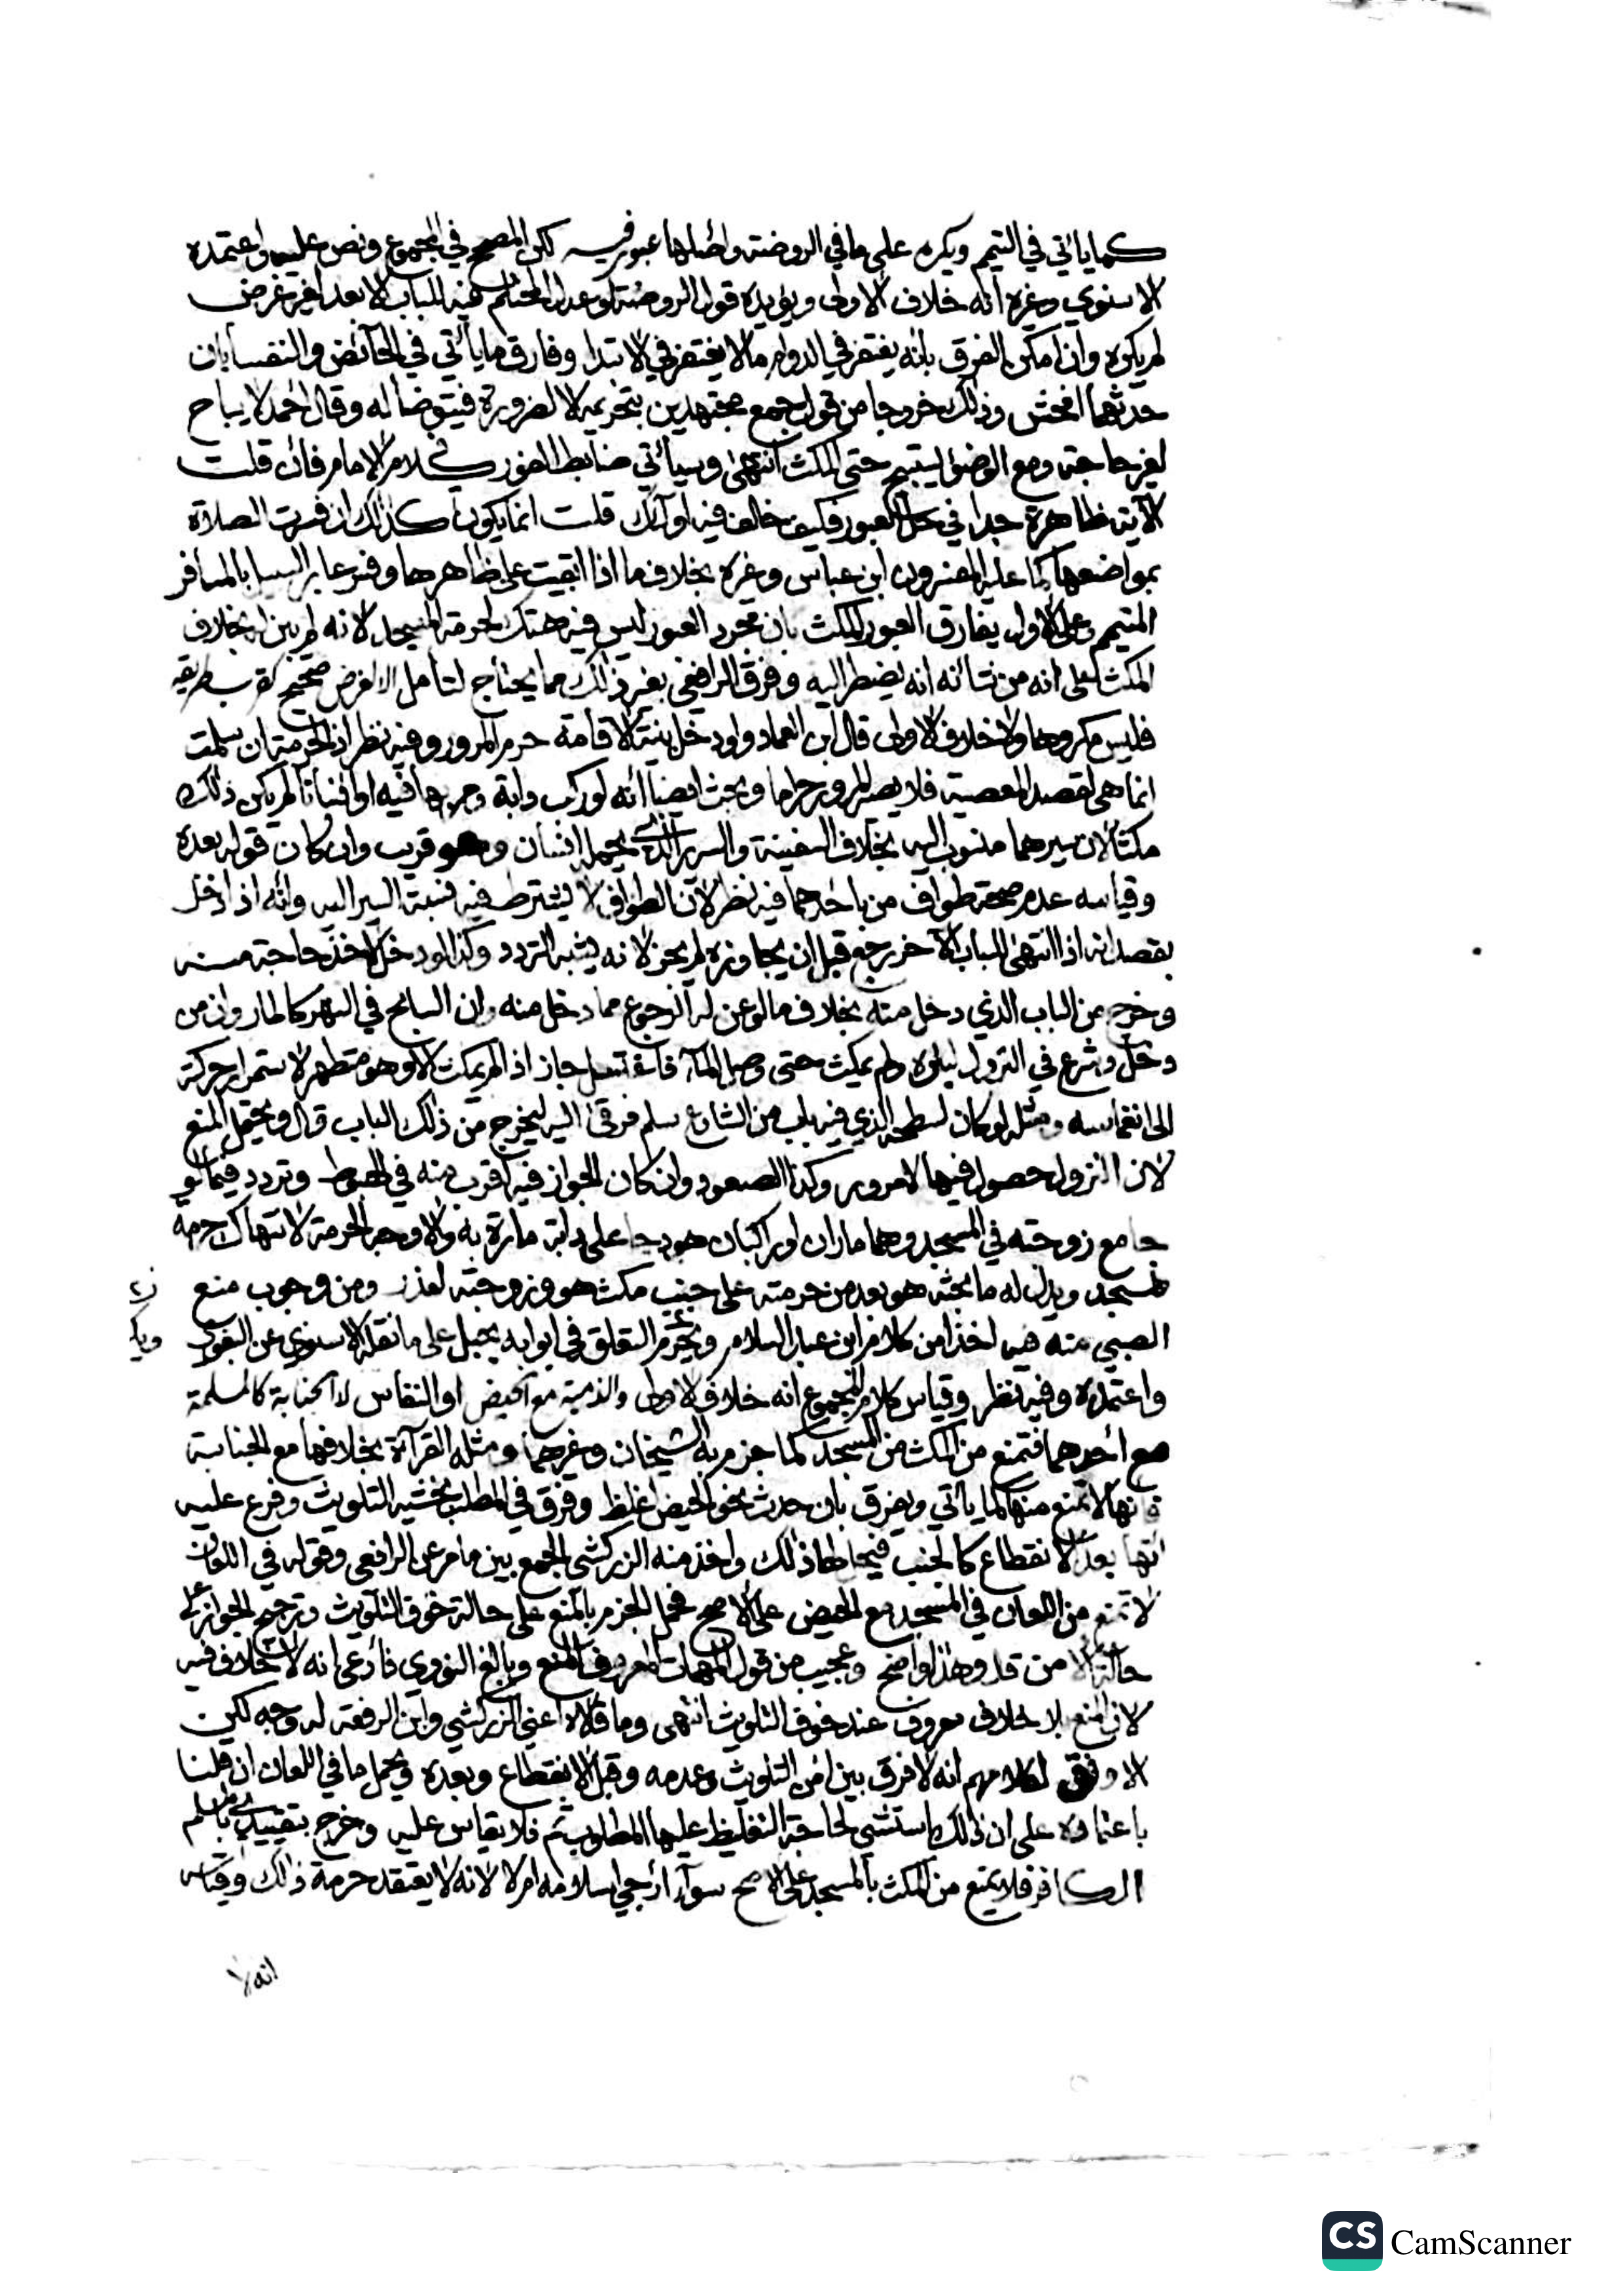 كما يأتي في التيمم ويكره على ما في الروضة واصلها عبور فيه لكن المصحح في المجموع ونص عليه واعتمده
الاسنوي وغيره أنه خلاف الاولى ويؤيده قول الروضة لو عدل المحتلم فيه للباب الا بعد لغير غرض
لم يكره وان امكن الفرق بانه يغتفر في الدوام ما لا يغتفر في الابتدا وفارق ما يأتي في الحائض والنفسا بان
حدثهما افحش وذلك خروجا من قول جمع مجتهدين بتحريمه الا لضرورة فيتوضأ له وقال أحمد لا يباح
لغير حاجة ومع الوضو يستبيح حتى المكث انتهى وسيأتي ضابط العبور في كلام الامام فان قلت
الآية ظاهرة جدا في حل العبور فكيف خالف فيه اولئك قلت انما يكون كذلك ان فسرت الصلاة
بمواضعها كما عليه المفسرون ابن عباس وغيره بخلاف ما اذا ابقيت على ظاهرها وفسر عابر السبيل بالمسافر
المتيمم وعلى الاول يفارق العبور المكث بان مجرد العبور ليس فيه هتك لحرمة المسجد لانه لم يبن له بخلاف
المكث على انه من شأنه انه يضطر اليه وفرق الرافعي بغير ذلك مما يحتاج لتأمل الا لغرض صحيح كقرب طريقه
فليس مكروها ولا خلاف الاولى قال ابن العماد ولو دخل بنية الاقامة حرم المرور وفيه نظر اذ الحرمة ان سلمت
انما هي لقصد المعصية فلا يصير المرور حراما وبحث ايضا أنه لو ركب دابة ومر بها فيه او انسانا لم يكن ذلك
مكثا لان سيرهما منسوب اليه بخلاف السفينة والسرير الذي يحمله انسان وهو قريب وان كان قوله بعده
وقياسه عدم صحة طواف من باحدهما فيه نظر لان الطواف لا يشترط فيه نسبة السير اليه وأنه اذا دخل
بقصد انه اذا انتهى للباب الآخر رجع قبل ان يجاوزه لم يجز لانه يشبه التردد وكذا لو دخل لاخذ حاجة منه
وخرج من الباب الذي دخل منه بخلاف ما لو عن له الرجوع مما دخل منه وان السابح في النهر كالمار وان من
دخل وشرع في النزول لبئره ولم يمكث حتى وصل الماء فاغتسل جاز اذ لم يمكث الا وهو متطهر لاستمرار حركته
الى انغماسه ومثله لو كان لسطحه الذي فيه باب من الشارع سلم فرقى اليه ليخرج من ذلك الباب قال ويحتمل المنع
لان النزول حصول فيها لا مرور وكذا الصعود وان كان الجواز فيه اقرب منه في الهبوط وتردد فيما لو
جامع زوجته في المسجد وهما ماران او راكبان هودجا على دابة مارة به والاوجه الحرمة لانتهاك حرمة
المسجد ويدل له ما بحثه هو بعد من حرمته على جنب مكث هو وزوجته لعذر ومن وجوب منع
الصبي منه فيه اخذا من كلام ابن عبد السلام ويحرم التعلق في ابوابه بحبل على ما نقله الاسنوي عن البغوي
ويك
واعتمده وفيه نظر وقياس كلام المجموع انه خلاف الاولى والذمية مع الحيض او النفاس لا الجنابة كالمسلمة
مع أحدهما فتمنع من المكث من المسجد كما جزم به الشيخان وغيرهما ومثله القرآءة بخلافها مع الجنابة
فانها لا تمنع منها كما يأتي ويفرق بان حدث نحو الحيض اغلظ وفرق في المطلب بخشية التلويث وفرع عليه
أنها بعد الانقطاع كالجنب فيجي لها ذلك واخذ منه الزركشي الجمع بين ما مر عن الرافعي وقوله في اللعان
لا تمنع من اللعان في المسجد مع الحيض على الاصح فحمل الجزم بالمنع على حالة خوف التلويث وترجيح الجواز على
حالة الامن قال وهذا واضح وعجيب من قول المهمات المعروف المنع وبالغ النووي فأدعى انه لا خلاف فيه
لان المنع بلا خلاف معروف عند خوف التلويث انتهى وما قالاه اعني الزركشي وابن الرفعة له وجه لكن
الاوفق لكلامهم انه لا فرق بين أمن التلويث وعدمه وقبل الانقطاع وبعده ويحمل ما في اللعان ان قلنا
باعتماده على ان ذلك استثني لحاجة التغليظ عليها المطلوب ثم فلا يقاس عليه وخرج بتقييدي بالمسلم
الكافر فلا يمنع من المكث بالمسجد على الاصح سوآء ارجي اسلامه ام لا لانه لا يعتقد حرمة ذلك وقياس
انه لا
CS CamScanner